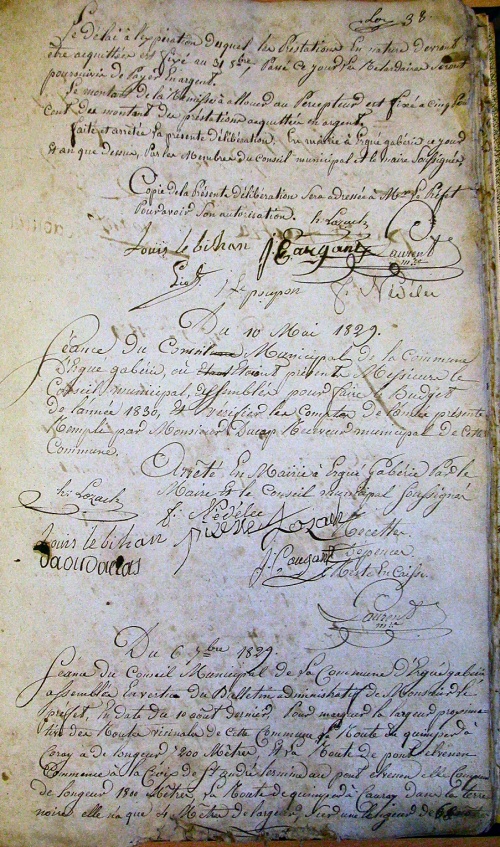 38
Le délai à l'expiration duquel les Prestations En nature devront
être acquittées est fixé au 31 Xbre, Passé ce jour les Retardataires seront
poursuivis de payer En argent.
Le montant de la Remise à allouer au Percepteur est fixé à Cinq pour
Cent du montant des prestations acquittées en argent.
faite et arrêtée la présente délibération, En mairie à Ergué gabéric ce jour
Et an que dessus, Par les Membres du Conseil municipal et le maire Soussignés
Copie de la Présente délibération Sera adressée à Mr. Le Préfet
Pour avoir Son autorisation. h: Lozach
Louis le bihan J: Gougant Laurent
mre
j le poupon f. Nédélec
Du 10 Mai 1829.
Séance du Conseil Municipal de la Commune
D'Ergué gabéric, où étaient présents Messieurs le
Conseil municipal, assemblés pour faire le Budget
de l'année 1830, Et Vérifier les Comptes de l'année présente
Remplie par Monsieur Ducap Receveur municipal de Cette
Commune.
Arrêté En Mairie à Ergué Gabéric par le
Maire Et le Conseil municipal Soussignés
h: Lozach f. Nédélec
Louis le bihan pierre Lozach Recette
daoudalas J: Gougant Dépences
Reste En Caisse
Laurent
mre
Du 6 7bre 1829
Séance du Conseil Municipal de la Commune d'Ergué gabéric
assemblés En vertu du Bulletin administratif de Monsieur le
Préfet, En date du 10 août dernier, Pour marquer la largeur
des Routes vicinales de Cette Commune Route de quimper à
Coray a de longeur 7200 Mètres Et la Route de pont
Commence à la Croix de St. andré termine au pont elle
de longeur 1800 Mètres, la Route de quimper à Coray dans le terre
noire elle na que 4 Mètres de largeur, Sur une longeur de